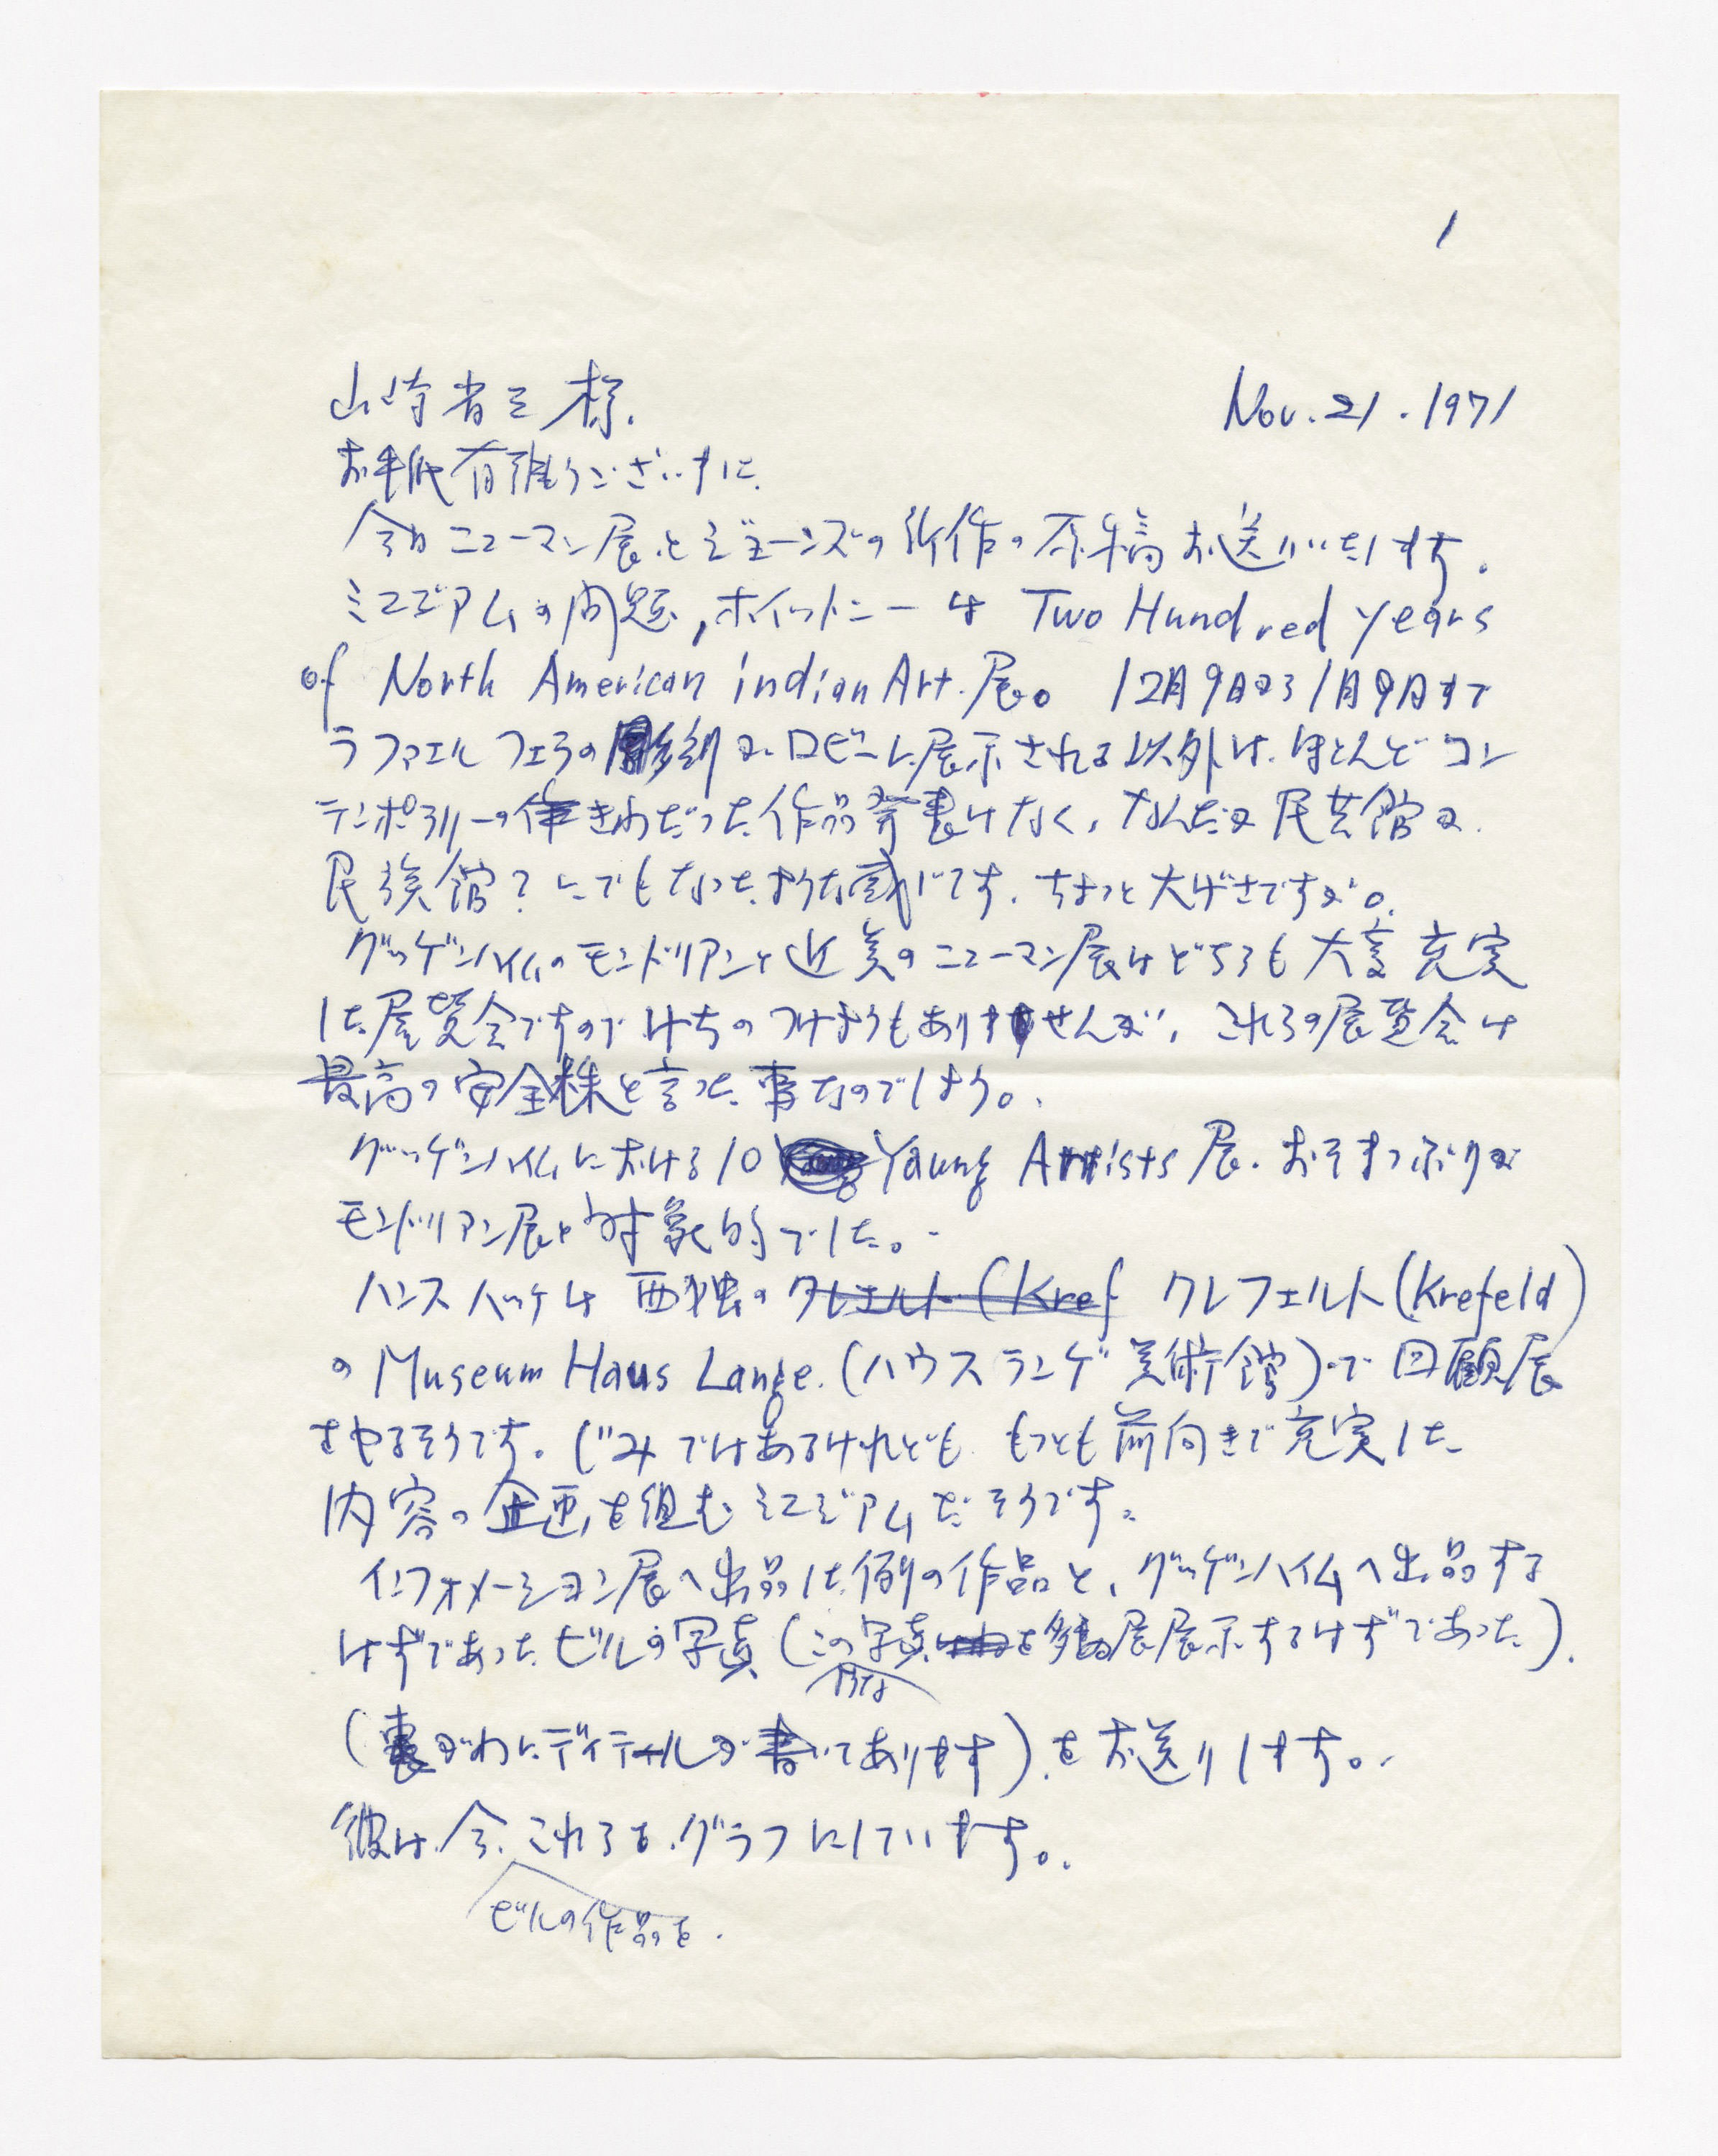 1
山崎省三様.
Nov. 21. 1971
お手紙有難うございました.
今日ニューマン展とジョーンズの新作の原稿お送りいたします。
ミュジアムの問題,ホイットニーは Two Hundred years
of North American indian Art. 展。 12月9日から1月9日まで
ラファエルフェラの彫刻がロビーに展示される以外は、ほとんどコン
テンポラリーのきわだった作品発表はなく、なんだか民芸館か
民族館?にでもなったような感じです、ちょっと大げさですが。
グッゲンハイムのモンドリアンと近美のニューマン展はどちらも大変充実
した展覧会ですのでけちのつけようもありませんが、これらの展覧会は
最高の安全株と言った事なのでしょう。
グッゲンハイムにおける10 Young Artists 展.おそまつぶりが
モンドリアン展と対象的でした。
ハンスハッケは西独の クレエルト (Kref クレフェルト(Krefeld)
の Museum Haus Lange.(ハウスランゲ美術館)で回顧展
をやるそうです。じみではあるけれども もっとも前向きで充実した
内容の企画を組むミュジアムだそうです。
インフォメーション展へ出品した例の作品と、グッゲンハイムへ出品する
はずであったビルの写真(この写真を多数展示するはずであった).
様な
(裏がわにディテールが書いてあります).をお送りします。
彼は、今、これらをグラフにしています。
ビルの作品を.